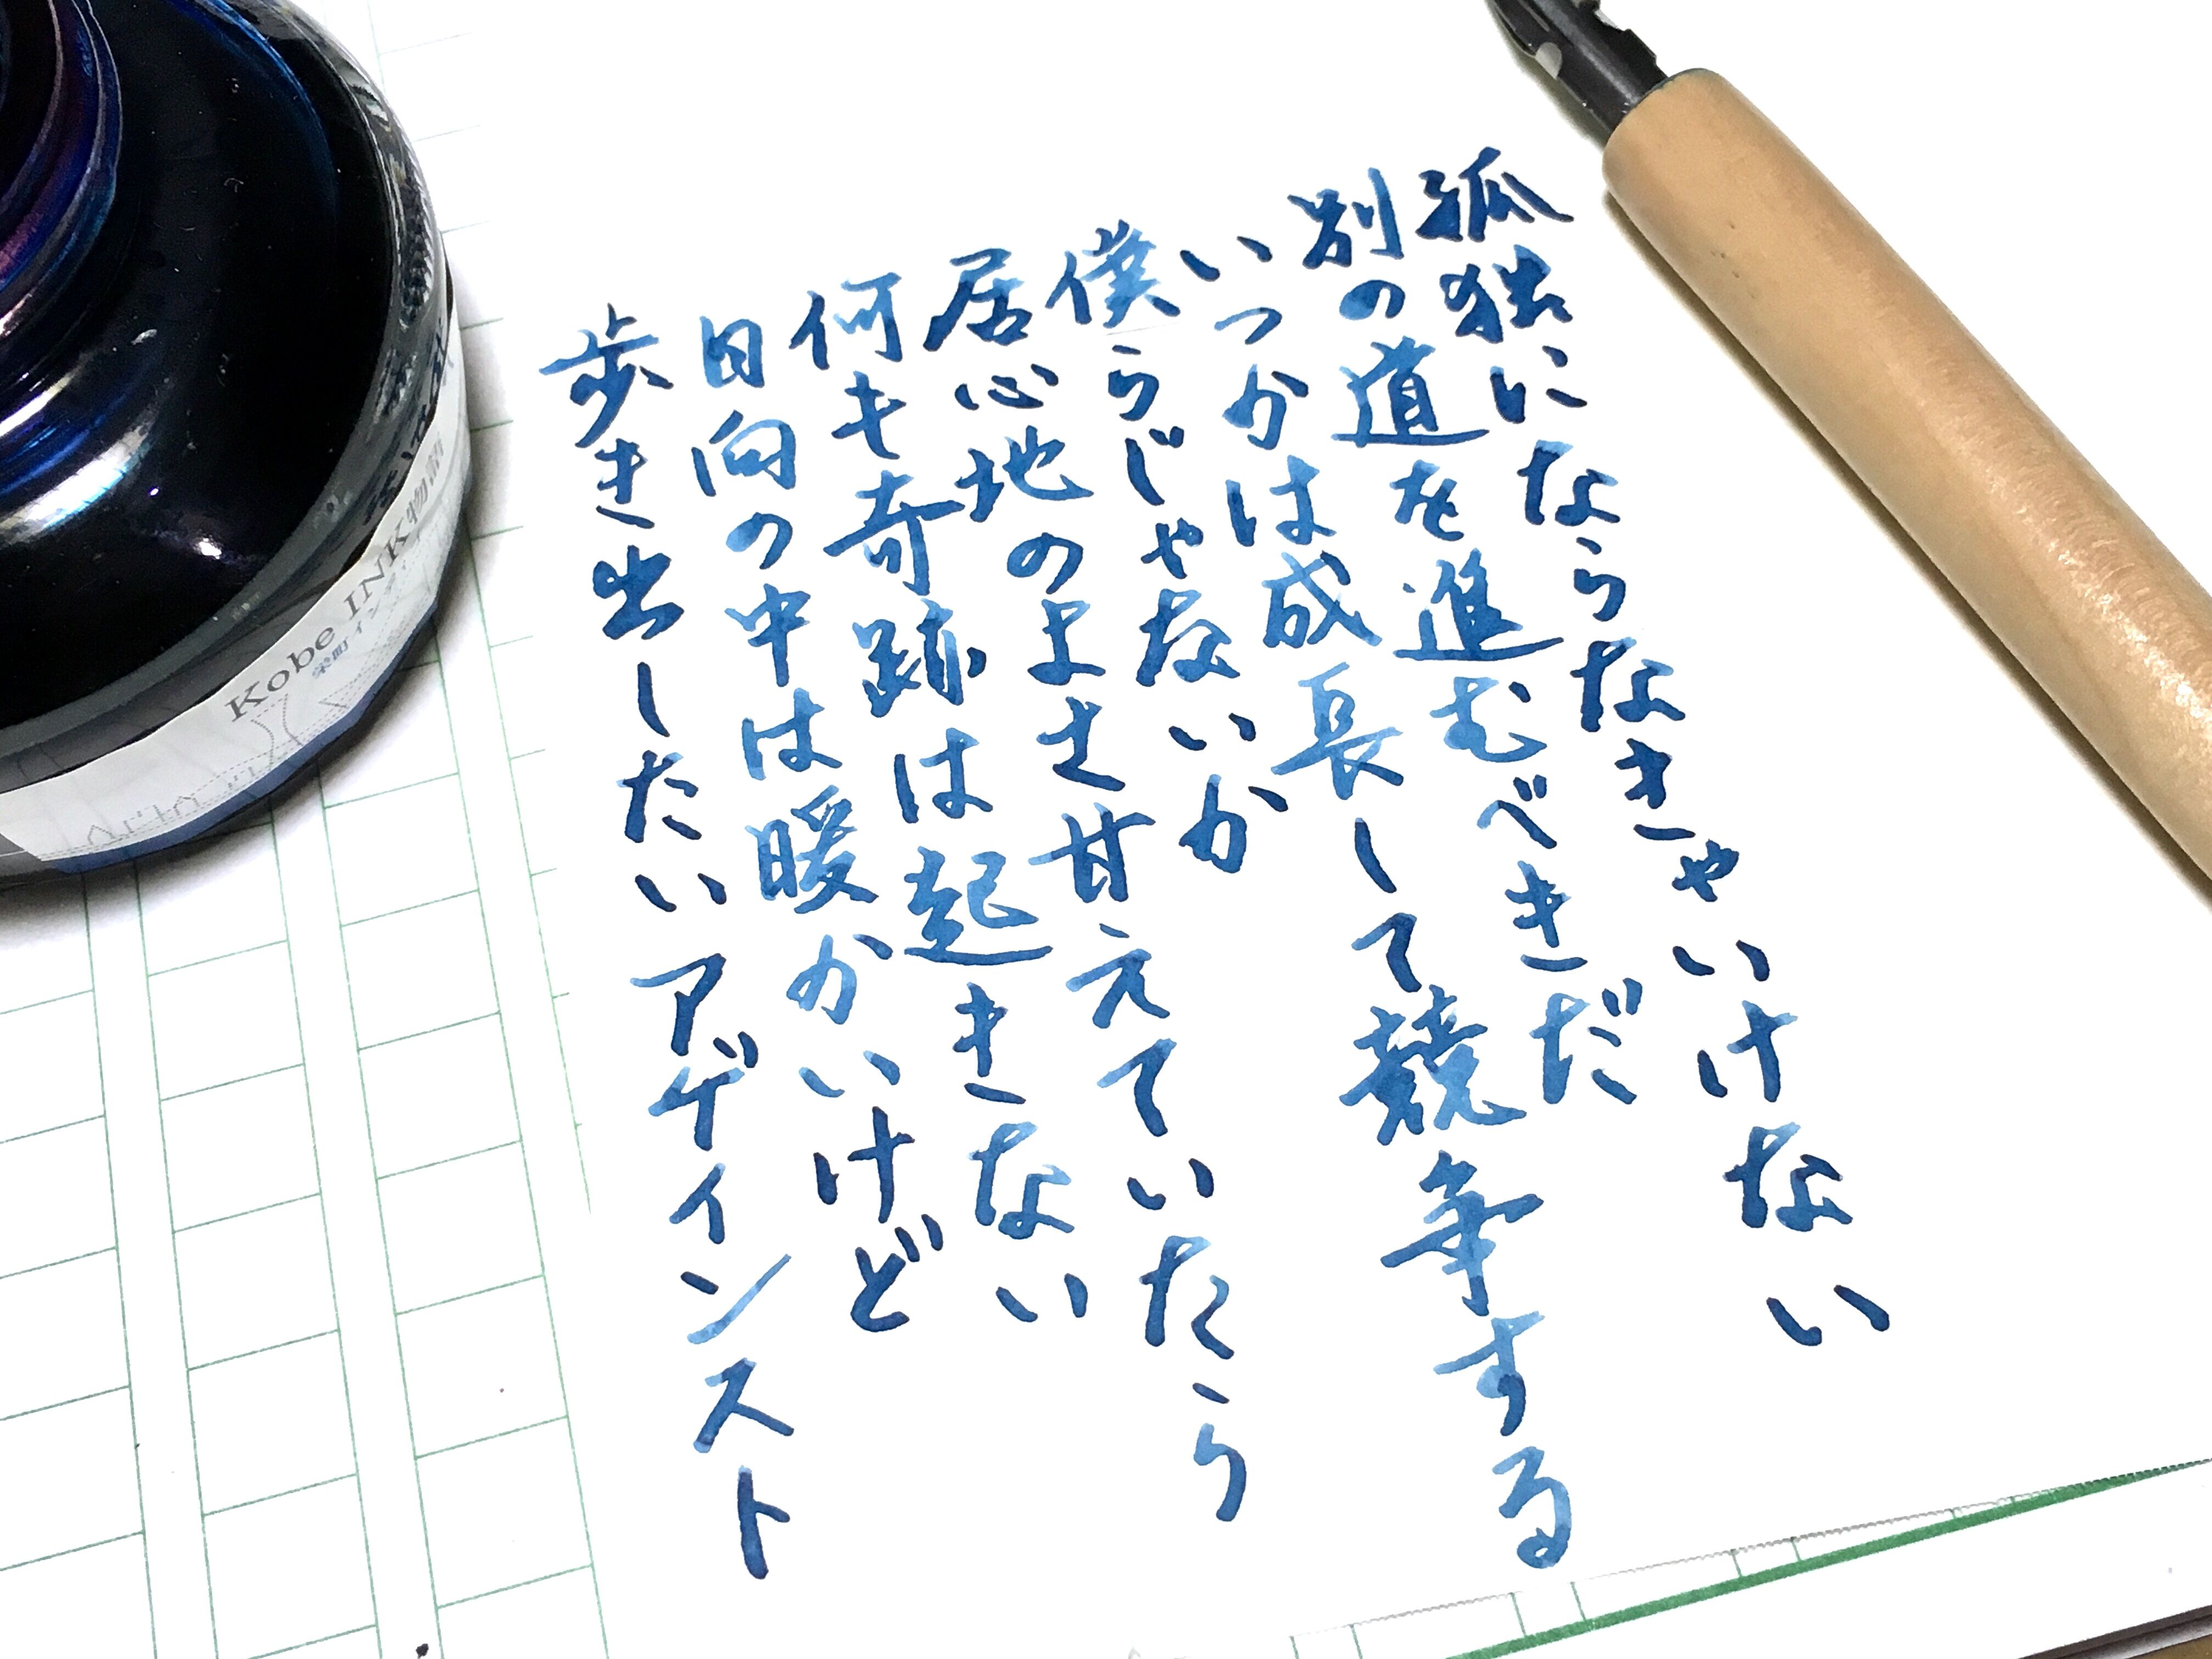 孤独にならなきゃいけない
別の道を進むべきだ
いつかは成長して競争する
僕らじゃないか
居心地のよさ甘えていたら
何も奇跡は起きない
日向の中は暖かいけど
歩き出したいアゲインスト
Kobe INK物語
栄町インディゴ